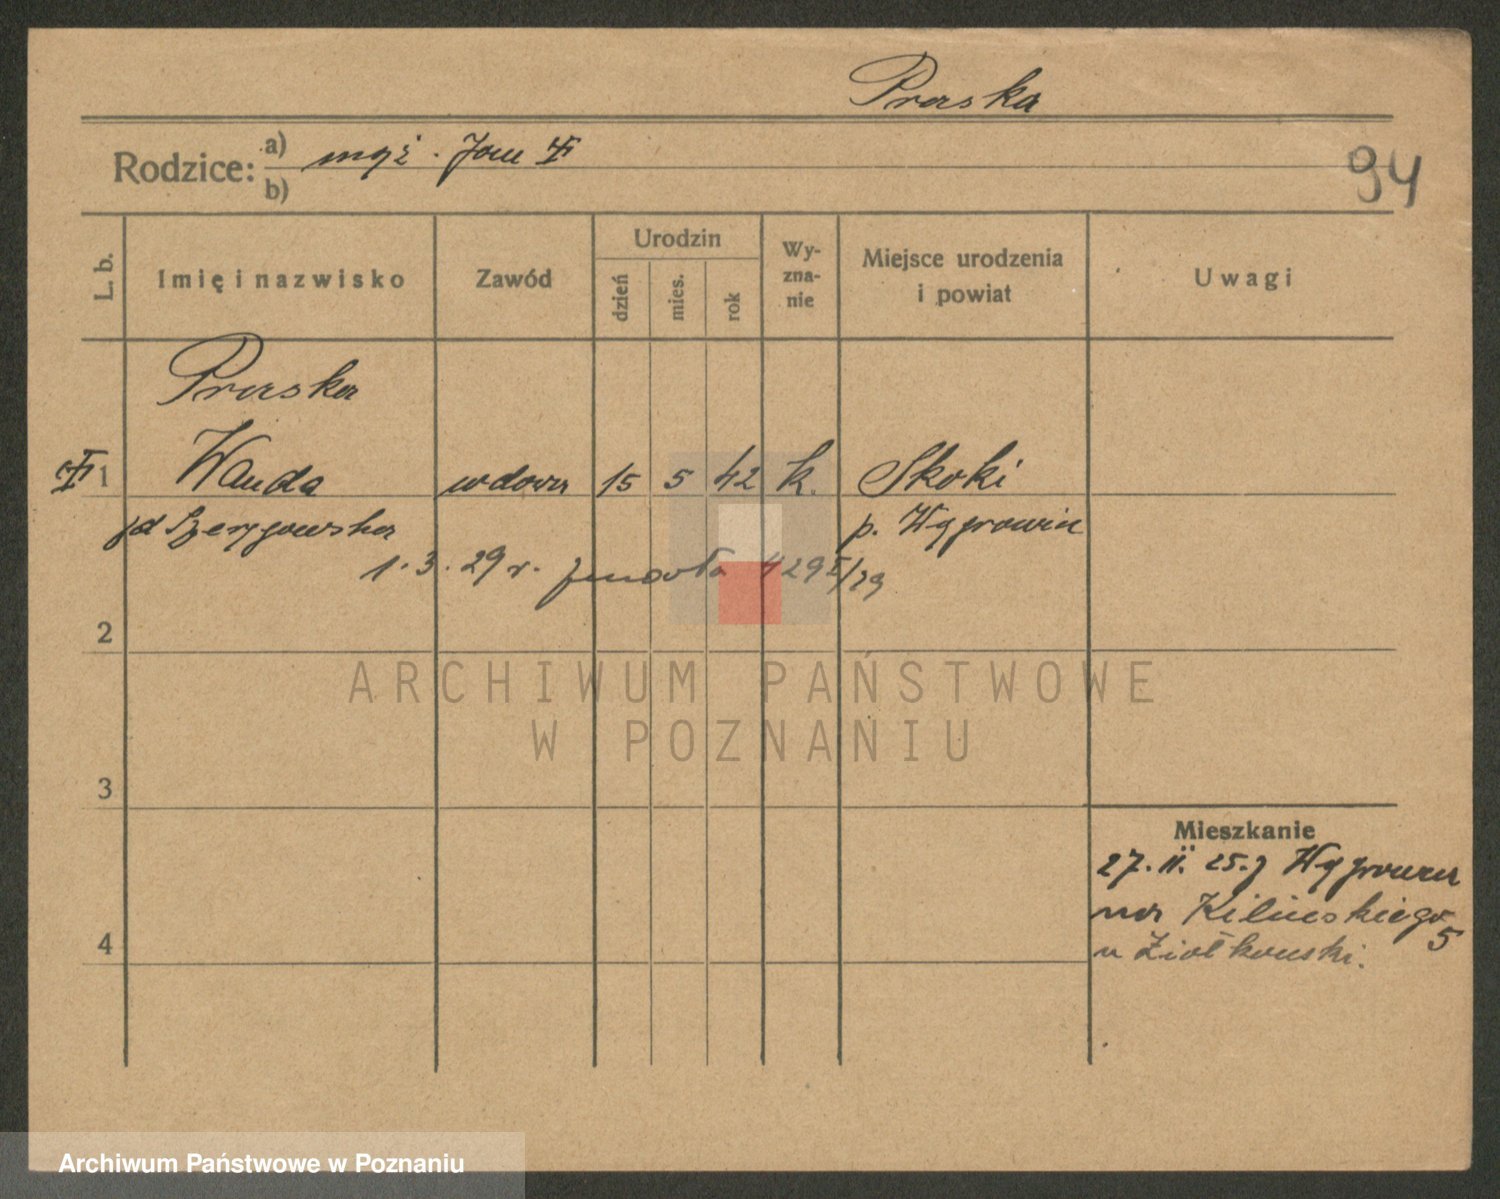 Praska
Rodzice:
a) mąż. Jan
b)
94
L. b.
Imię i nazwisko
Zawód
Urodzin
dzień
mies.
rok
Wy-
zna-
nie
Miejsce urodzenia
i powiat
Uwagi
Praska
1 Wanda wdowa 15 5 42 k. Skoki
p. Wągrowiec
1.3.29 r. zmarła
2
3
4
Mieszkanie
27. II. 25. z Wągrowca
na Kilińskiego
5
u Ziółkowski.
ARCHIWUM PAŃSTWOWE
W POZNANIU
Archiwum Państwowe w Poznaniu